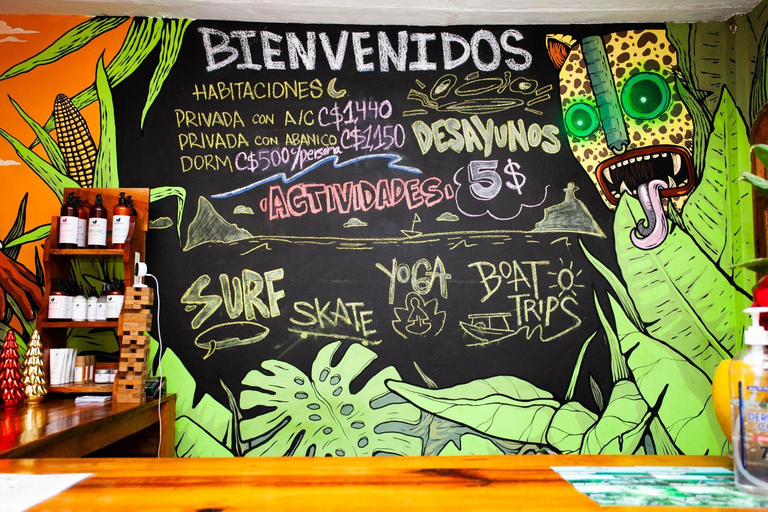 BIENVENIDOS
HABITACIONES
PRIVADA CON A/C C$1440
PRIVADA CON ABANICO C$1,150
DORM C$500%/persona
DESAYUNOS
5$
ACTIVIDADES
SURF
SKATE
YOGA
BOAT
TRIPS